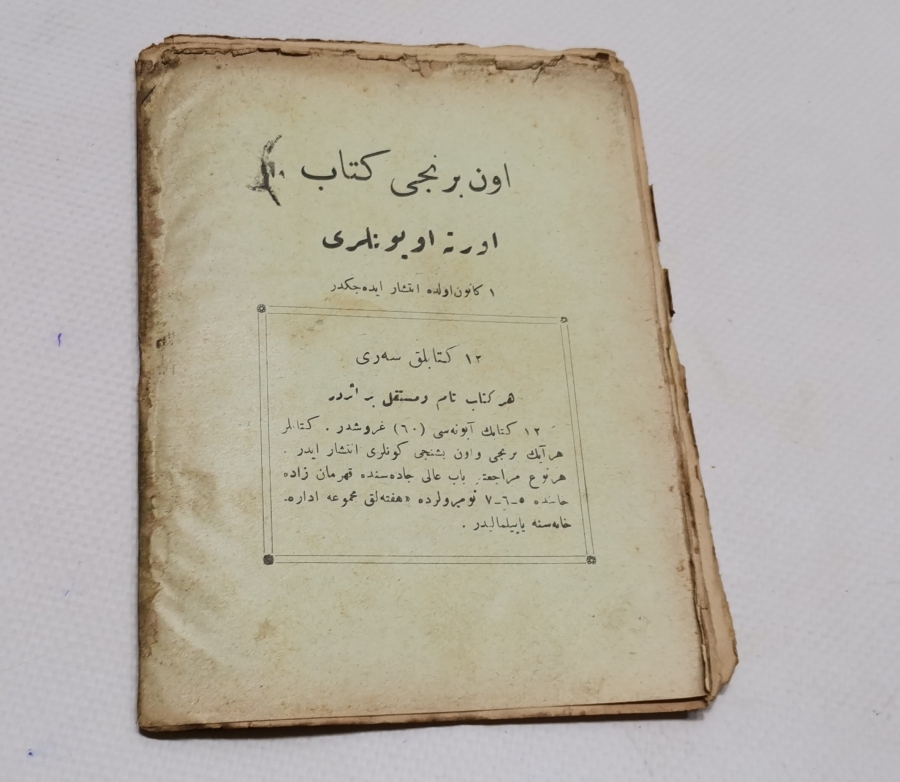 اون برنجی کتاب
اورته اویونلری
۱ کانون اولده انتشار ایده‌جکدر
۱۲ کتابلق سه‌ری
هر کتاب تام ومستقل بر اثردر
۱۲ کتابك آبونه‌سی (۶۰) غروشدر . کتابلر
هر آیك برنجی واون بشنجی کونلری انتشار ایدر .
هر نوع مراجعت باب عالی جاده‌سنده قهرمان زاده
خاننده ۵-۶-۷ نومیرولرده «هفته‌لق مجموعه اداره‌
خانه‌سنه یاپیلمالیدر .